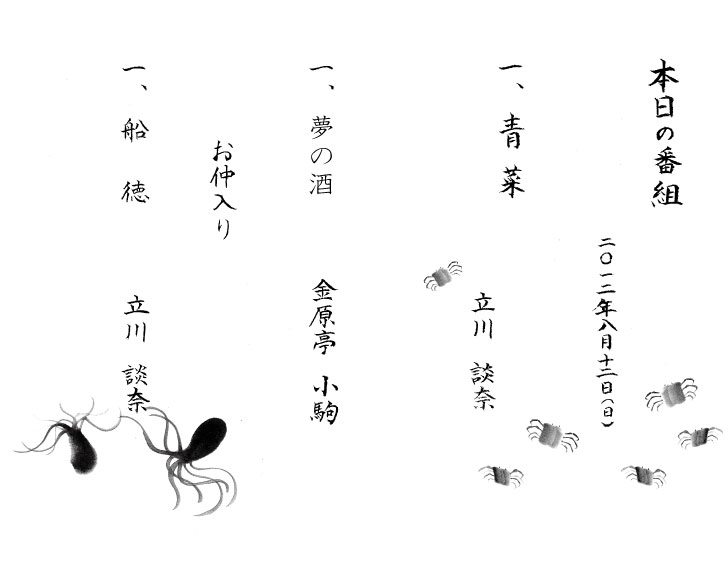 本日の番組
二〇一二年八月十二日(日)
一、青菜
立川 談奈
一、夢の酒
金原亭 小駒
お仲入り
一、船徳
立川 談奈